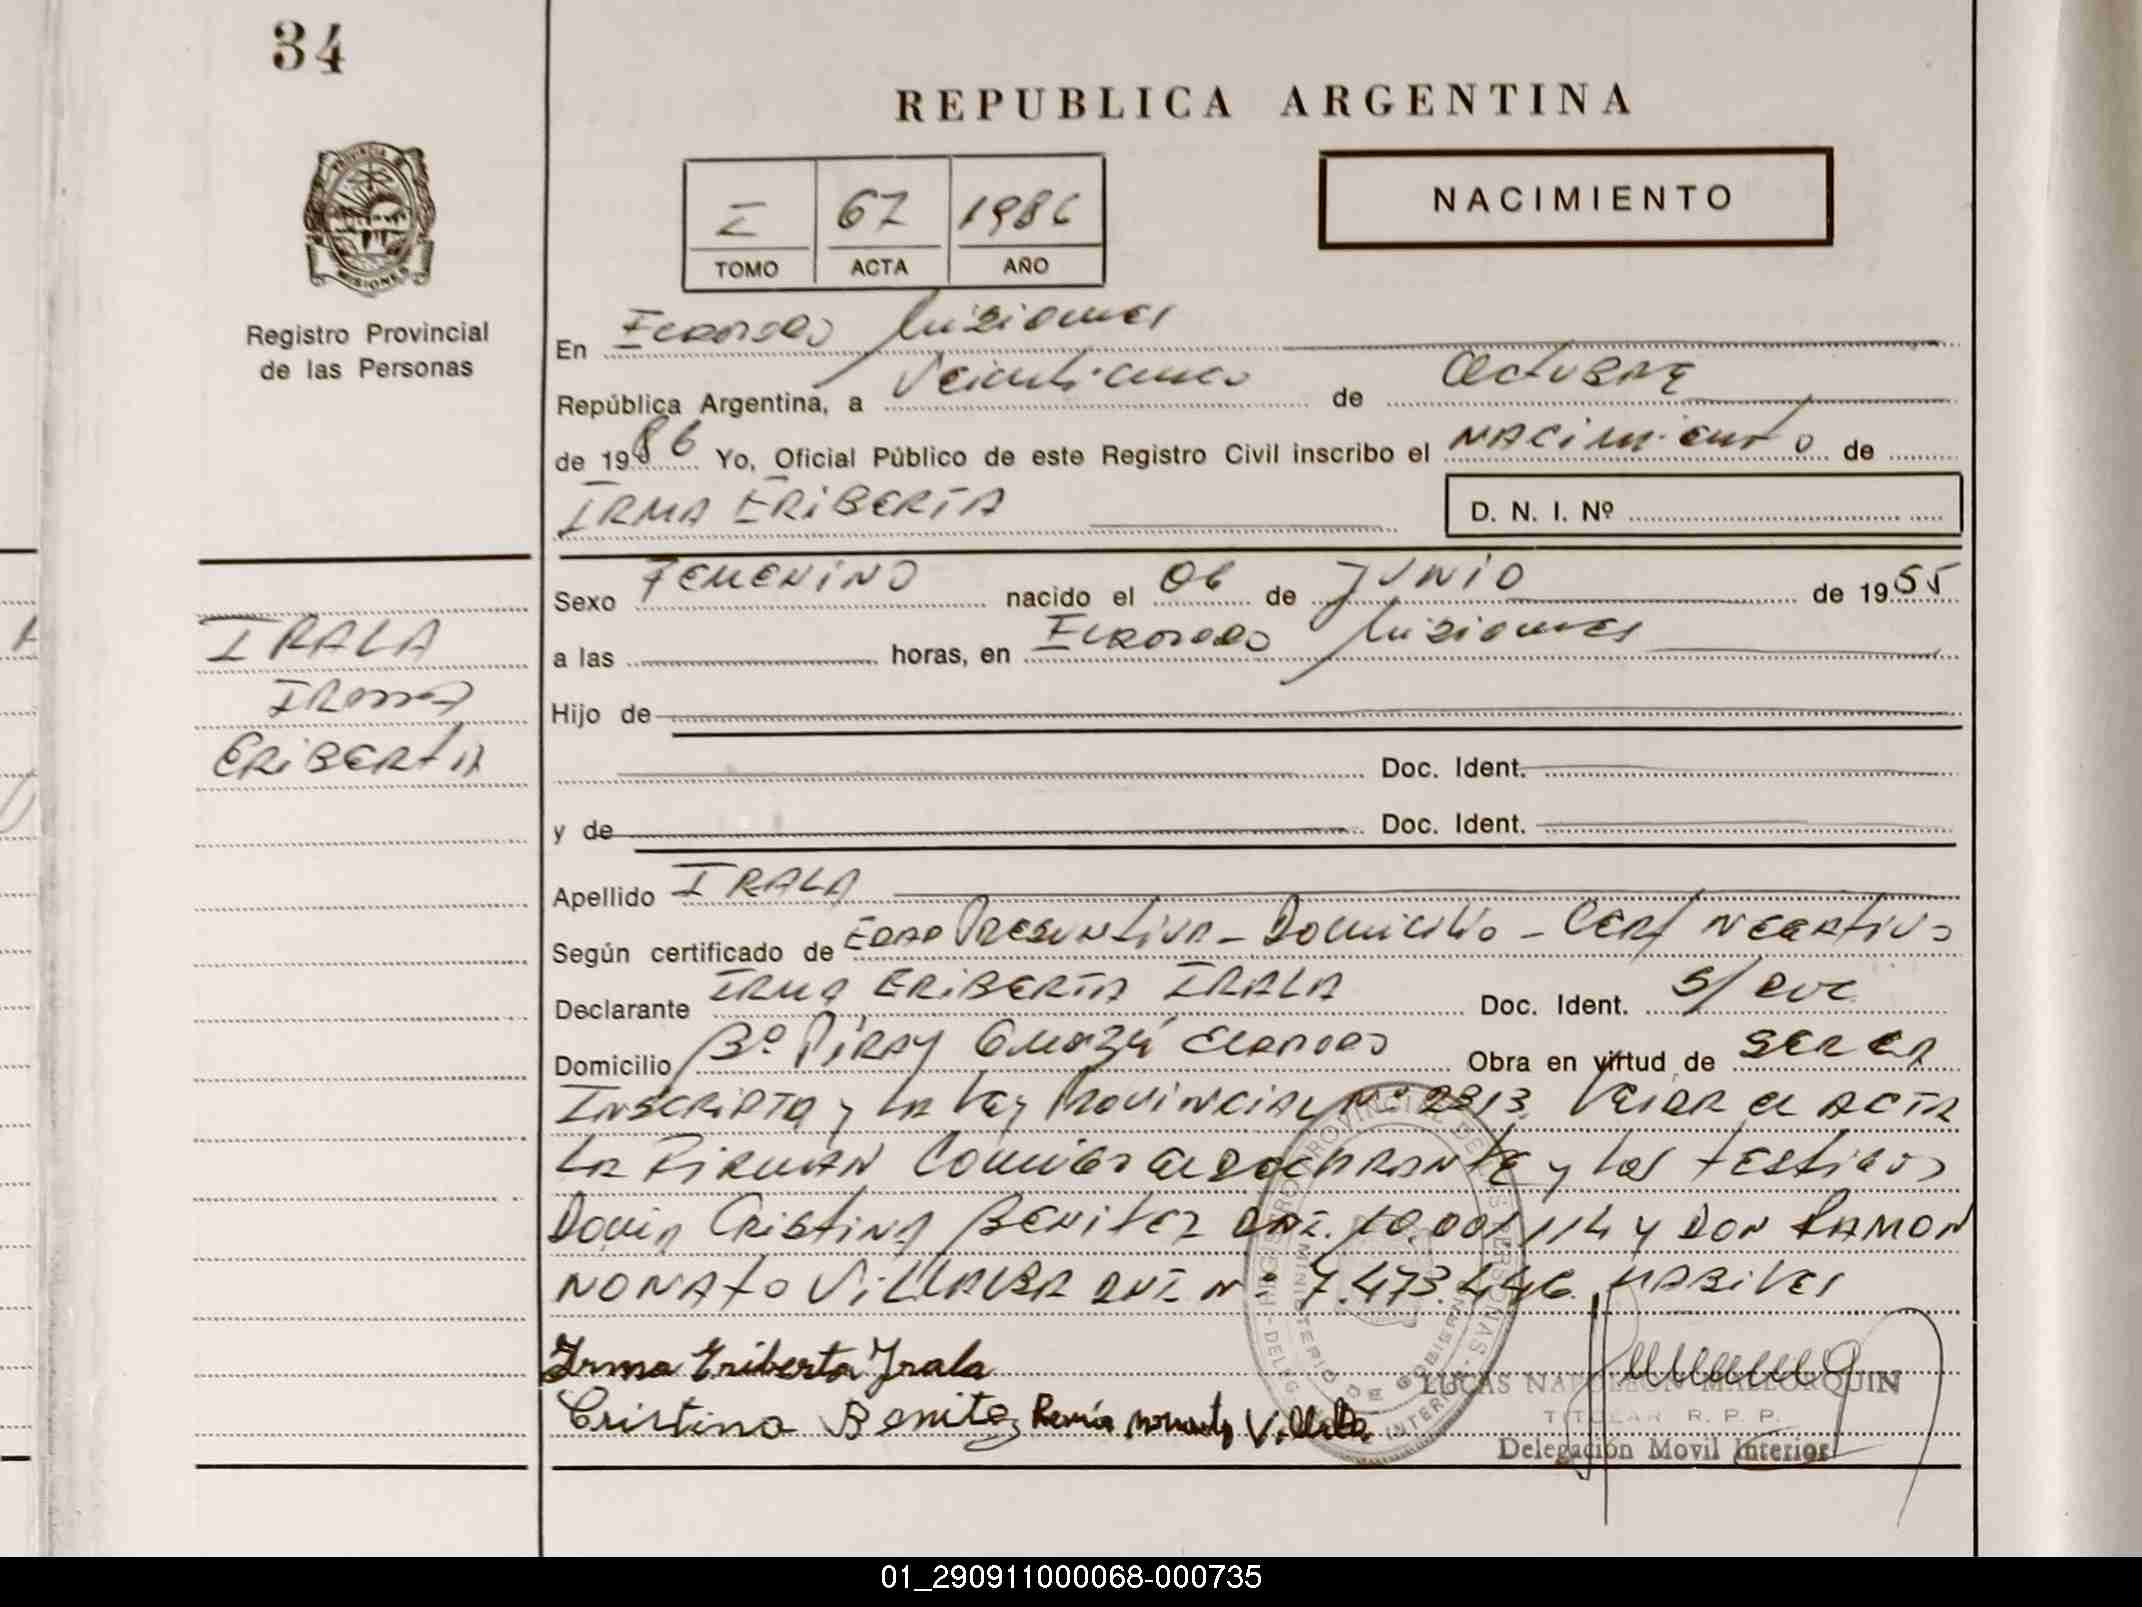 34
REPUBLICA ARGENTINA
PROVINCIA DE
MISIONES
Registro Provincial
de las Personas
I 67 1986
TOMO ACTA AÑO
NACIMIENTO
En Eldorado Misiones
República Argentina, a Veinticinco de Octubre
de 1986 Yo, Oficial Público de este Registro Civil inscribo el NACimiento de
IRMA ERIBERTA
D. N. I. Nº
Sexo FEMENINO nacido el 06 de JUNIO de 1955
a las horas, en Eldorado Misiones
IRALA
IRMA
ERIBERTA
Hijo de
Doc. Ident.
y de Doc. Ident.
Apellido IRALA
Según certificado de EDAD Presuntiva - Domicilio - Cert Negativo
Declarante IRMA ERIBERTA IRALA Doc. Ident. S/
Domicilio Bº Piray Guazú Eldorado Obra en virtud de SER LA
Inscripta y la Ley Provincial Nº 2313. el ACTA
la Firman Conmigo el Declarante y los testigos
Doña Cristina BENITEZ DNI. 10.001.114 y DON RAMON
NONATO VILLALBA DNI Nº 7.473.446.
Irma Eriberta Irala
Cristina Benitez Ramón Nonato Villalba
LUCAS NAPOLEON MALLORQUIN
TITULAR R. P. P.
Delegación Movil Interior
01_290911000068-000735